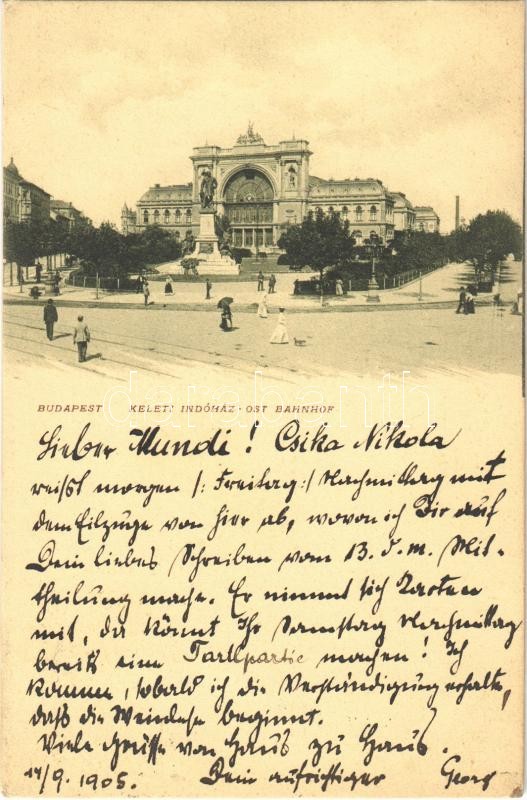 BUDAPEST KELETI INDÓHÁZ · OST BAHNHOF
Lieber Mundi! Csika Nikola
reist morgen /: Freitag :/ Nachmittag mit
dem Eilzuge von hier ab, wovon ich Dir auf
Dein liebes Schreiben vom 13. d. m. Mit-
theilung mache. Er nimmt sich Karten
mit, da könnt Ihr Samstag Nachmittag
bereits eine Partie machen! Ich
komme, sobald ich die Verständigung erhalte,
daß die Weinlese beginnt.
Viele Grüsse von Haus zu Haus.
14/9. 1905. Dein aufrichtiger Georg
darabanth